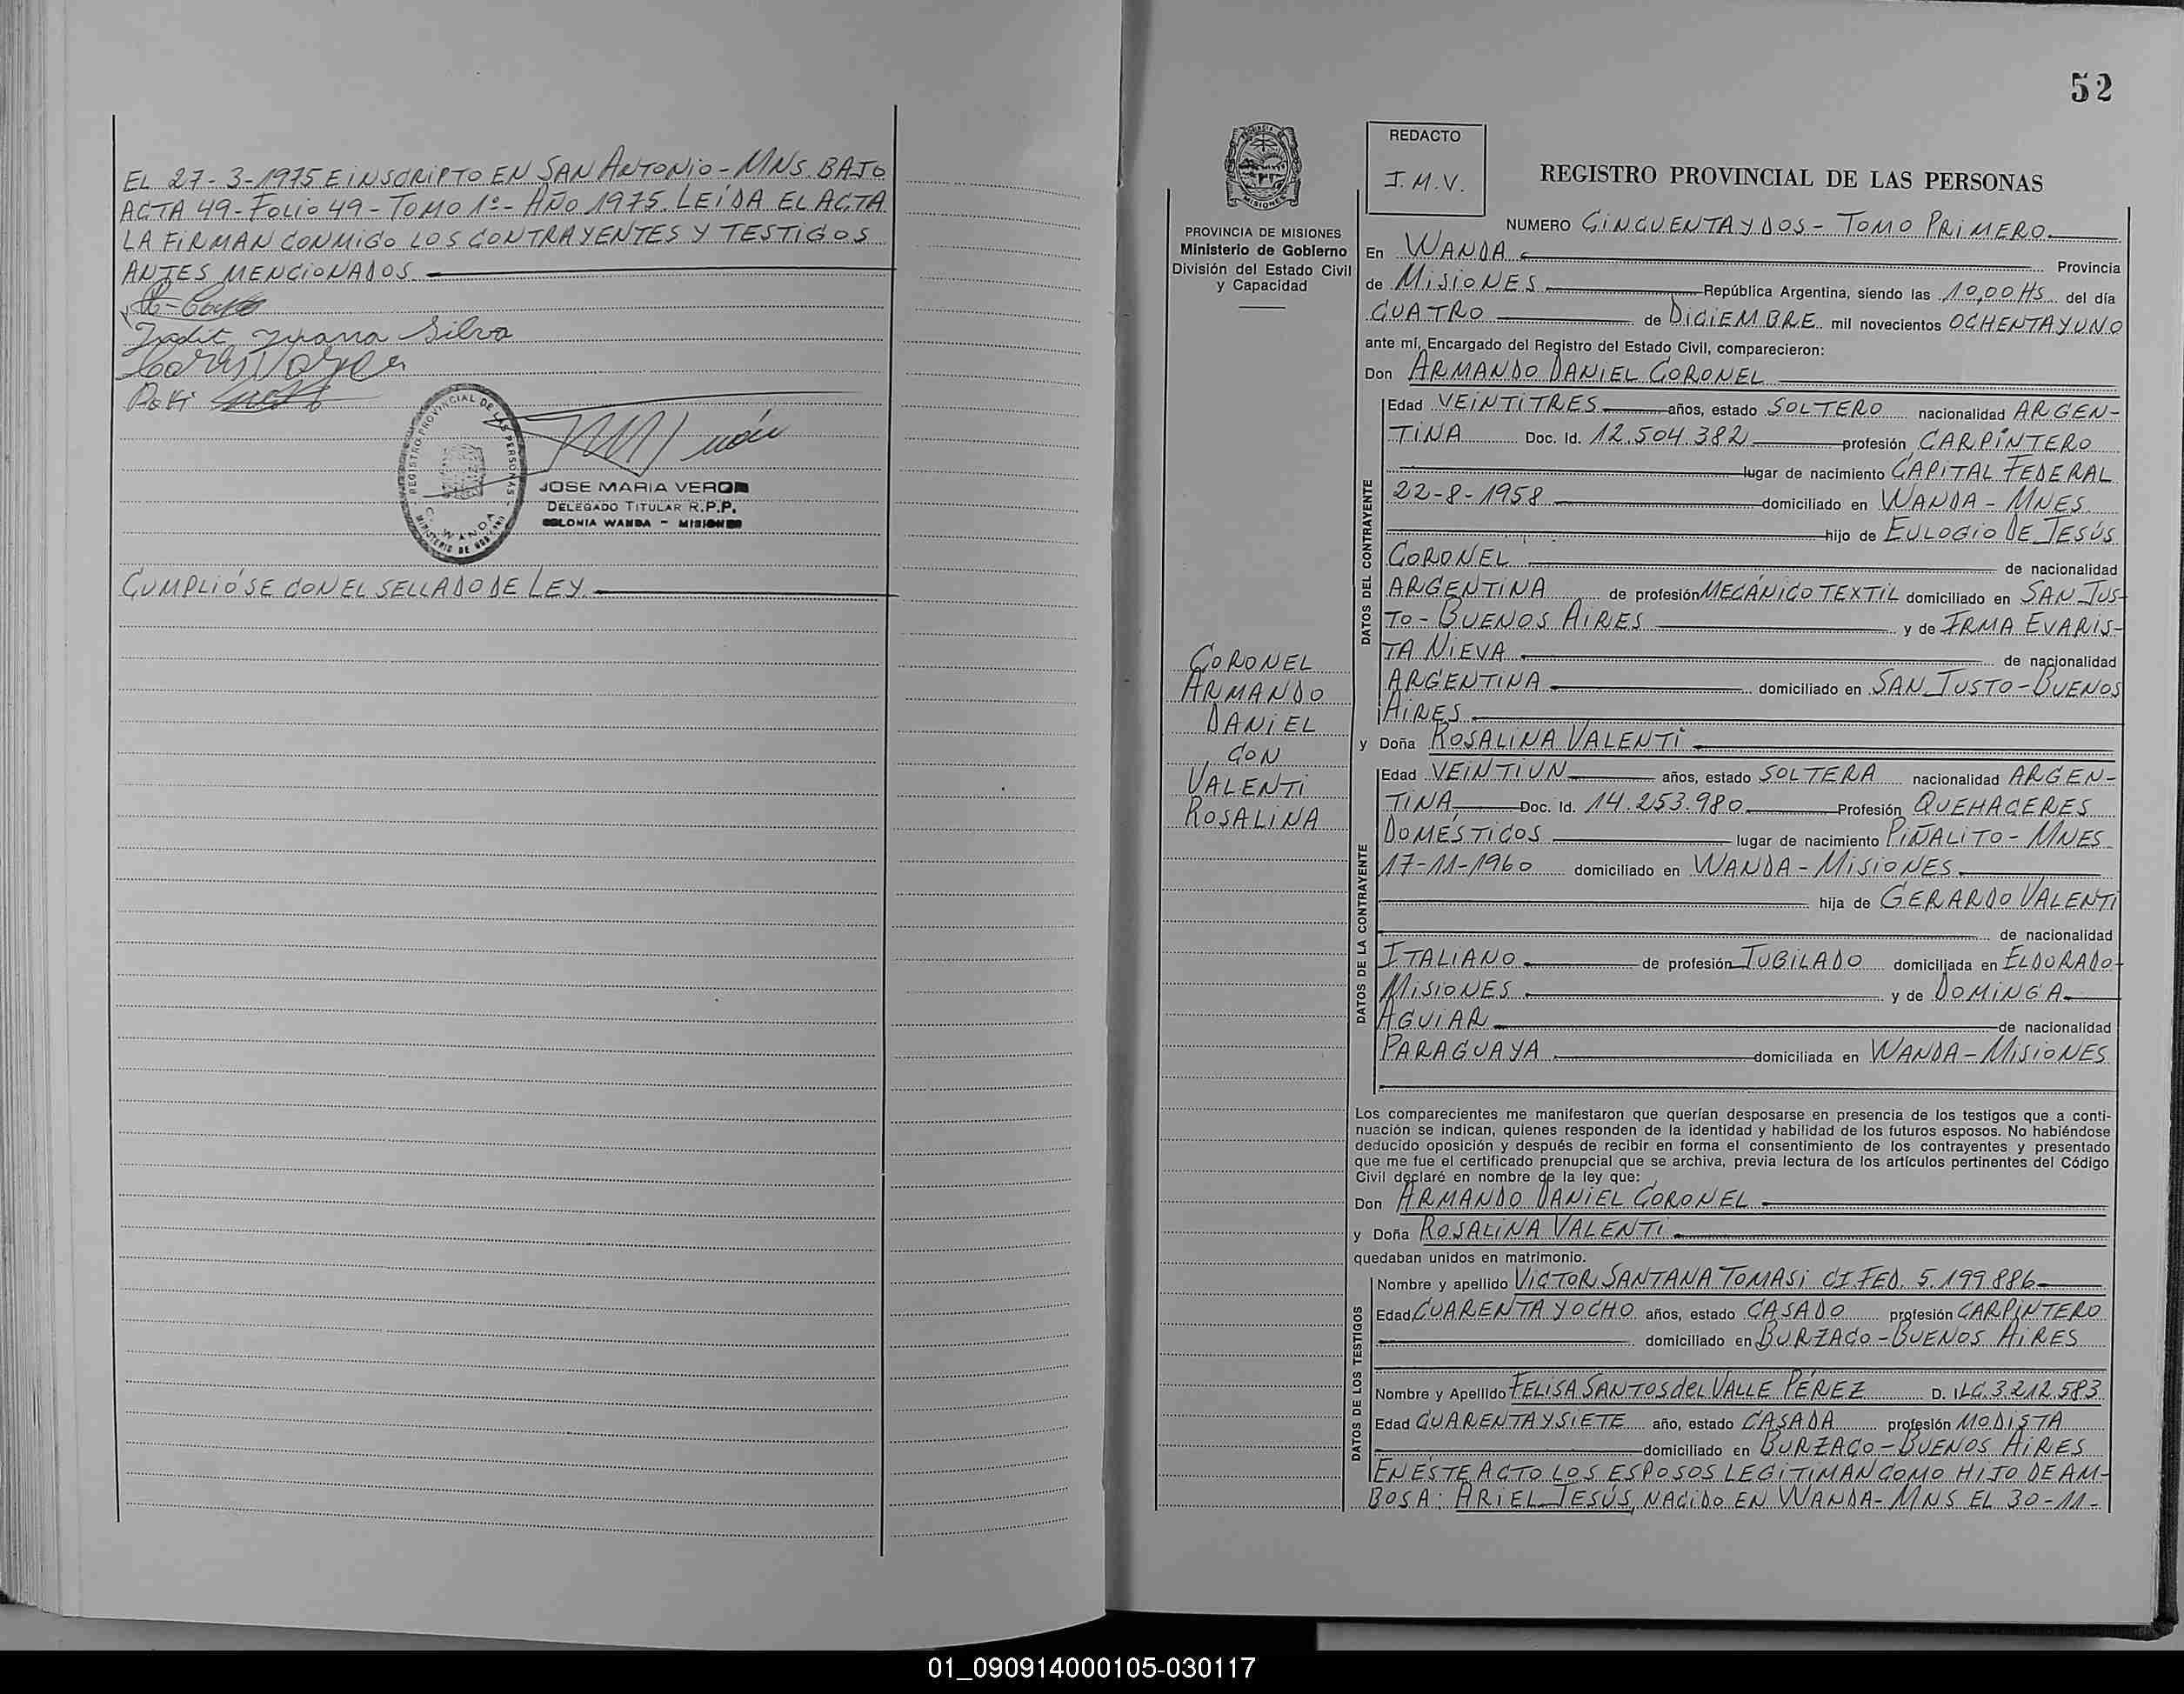 EL 27-3-1975 E INSCRIPTO EN SAN ANTONIO - MNS. BAJO
ACTA 49 - FOLIO 49 - TOMO 1º - AÑO 1975. LEÍDA EL ACTA
LA FIRMAN CONMIGO LOS CONTRAYENTES Y TESTIGOS
ANTES MENCIONADOS
Juana Silva
REGISTRO PROVINCIAL DE LAS PERSONAS
C. WANDA
MINISTERIO DE GOBIERNO
JOSE MARIA VERON
DELEGADO TITULAR R.P.P.
COLONIA WANDA - MISIONES
CUMPLIÓSE CON EL SELLADO DE LEY.
52
PROVINCIA DE MISIONES
Ministerio de Gobierno
División del Estado Civil
y Capacidad
CORONEL
ARMANDO
DANIEL
CON
VALENTI
ROSALINA
REDACTO
J.M.V.
REGISTRO PROVINCIAL DE LAS PERSONAS
NUMERO CINCUENTA Y DOS - TOMO PRIMERO.
En WANDA Provincia
de MISIONES República Argentina, siendo las 10,00 HS. del día
CUATRO de DICIEMBRE mil novecientos OCHENTA Y UNO
ante mí, Encargado del Registro del Estado Civil, comparecieron:
Don ARMANDO DANIEL CORONEL
DATOS DEL CONTRAYENTE
Edad VEINTITRES años, estado SOLTERO nacionalidad ARGEN-
TINA Doc. Id. 12.504.382 profesión CARPINTERO
lugar de nacimiento CAPITAL FEDERAL
22-8-1958 domiciliado en WANDA - MNES.
hijo de EULOGIO DE JESÚS
CORONEL de nacionalidad
ARGENTINA de profesión MECÁNICO TEXTIL domiciliado en SAN JUS-
TO - BUENOS AIRES y de IRMA EVARIS-
TA NIEVA de nacionalidad
ARGENTINA domiciliado en SAN JUSTO - BUENOS
AIRES
y Doña ROSALINA VALENTI
DATOS DE LA CONTRAYENTE
Edad VEINTIUN años, estado SOLTERA nacionalidad ARGEN-
TINA Doc. Id. 14.253.980 Profesión QUEHACERES
DOMÉSTICOS lugar de nacimiento PIÑALITO - MNES
17-11-1960 domiciliado en WANDA - MISIONES
hija de GERARDO VALENTI
de nacionalidad
ITALIANO de profesión JUBILADO domiciliada en ELDORADO-
MISIONES y de DOMINGA
AGUIAR de nacionalidad
PARAGUAYA domiciliada en WANDA - MISIONES
Los comparecientes me manifestaron que querían desposarse en presencia de los testigos que a conti-
nuación se indican, quienes responden de la identidad y habilidad de los futuros esposos. No habiéndose
deducido oposición y después de recibir en forma el consentimiento de los contrayentes y presentado
que me fue el certificado prenupcial que se archiva, previa lectura de los artículos pertinentes del Código
Civil declaré en nombre de la ley que:
Don ARMANDO DANIEL CORONEL
y Doña ROSALINA VALENTI
quedaban unidos en matrimonio.
DATOS DE LOS TESTIGOS
Nombre y apellido VICTOR SANTANA TOMASI CI. FED. 5.199.886
Edad CUARENTA Y OCHO años, estado CASADO profesión CARPINTERO
domiciliado en BURZACO - BUENOS AIRES
Nombre y Apellido FELISA SANTOS del VALLE PÉREZ D. I. LC. 3.212.583
Edad CUARENTA Y SIETE año, estado CASADA profesión MODISTA
domiciliado en BURZACO - BUENOS AIRES
EN ÉSTE ACTO LOS ESPOSOS LEGITIMAN COMO HIJO DE AM-
BOS A: ARIEL JESÚS, NACIDO EN WANDA - MNS EL 30-11-
01_090914000105-030117